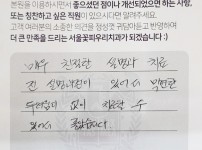 본원을 이용하시면서 좋으셨던 점이나 개선되었으면 하는 사항,
또는 칭찬하고 싶은 직원이 있으시다면 알려주세요.
고객 여러분의 소중한 의견을 정성껏 귀담아듣고 반영하여
더 큰 만족을 드리는 서울꽃피우리치과가 되겠습니다 :)
매우 친절한 설명과 치료
전 설명시간이 있어서 막연한
두려움 없이 치료할 수
있어서 좋았습니다.